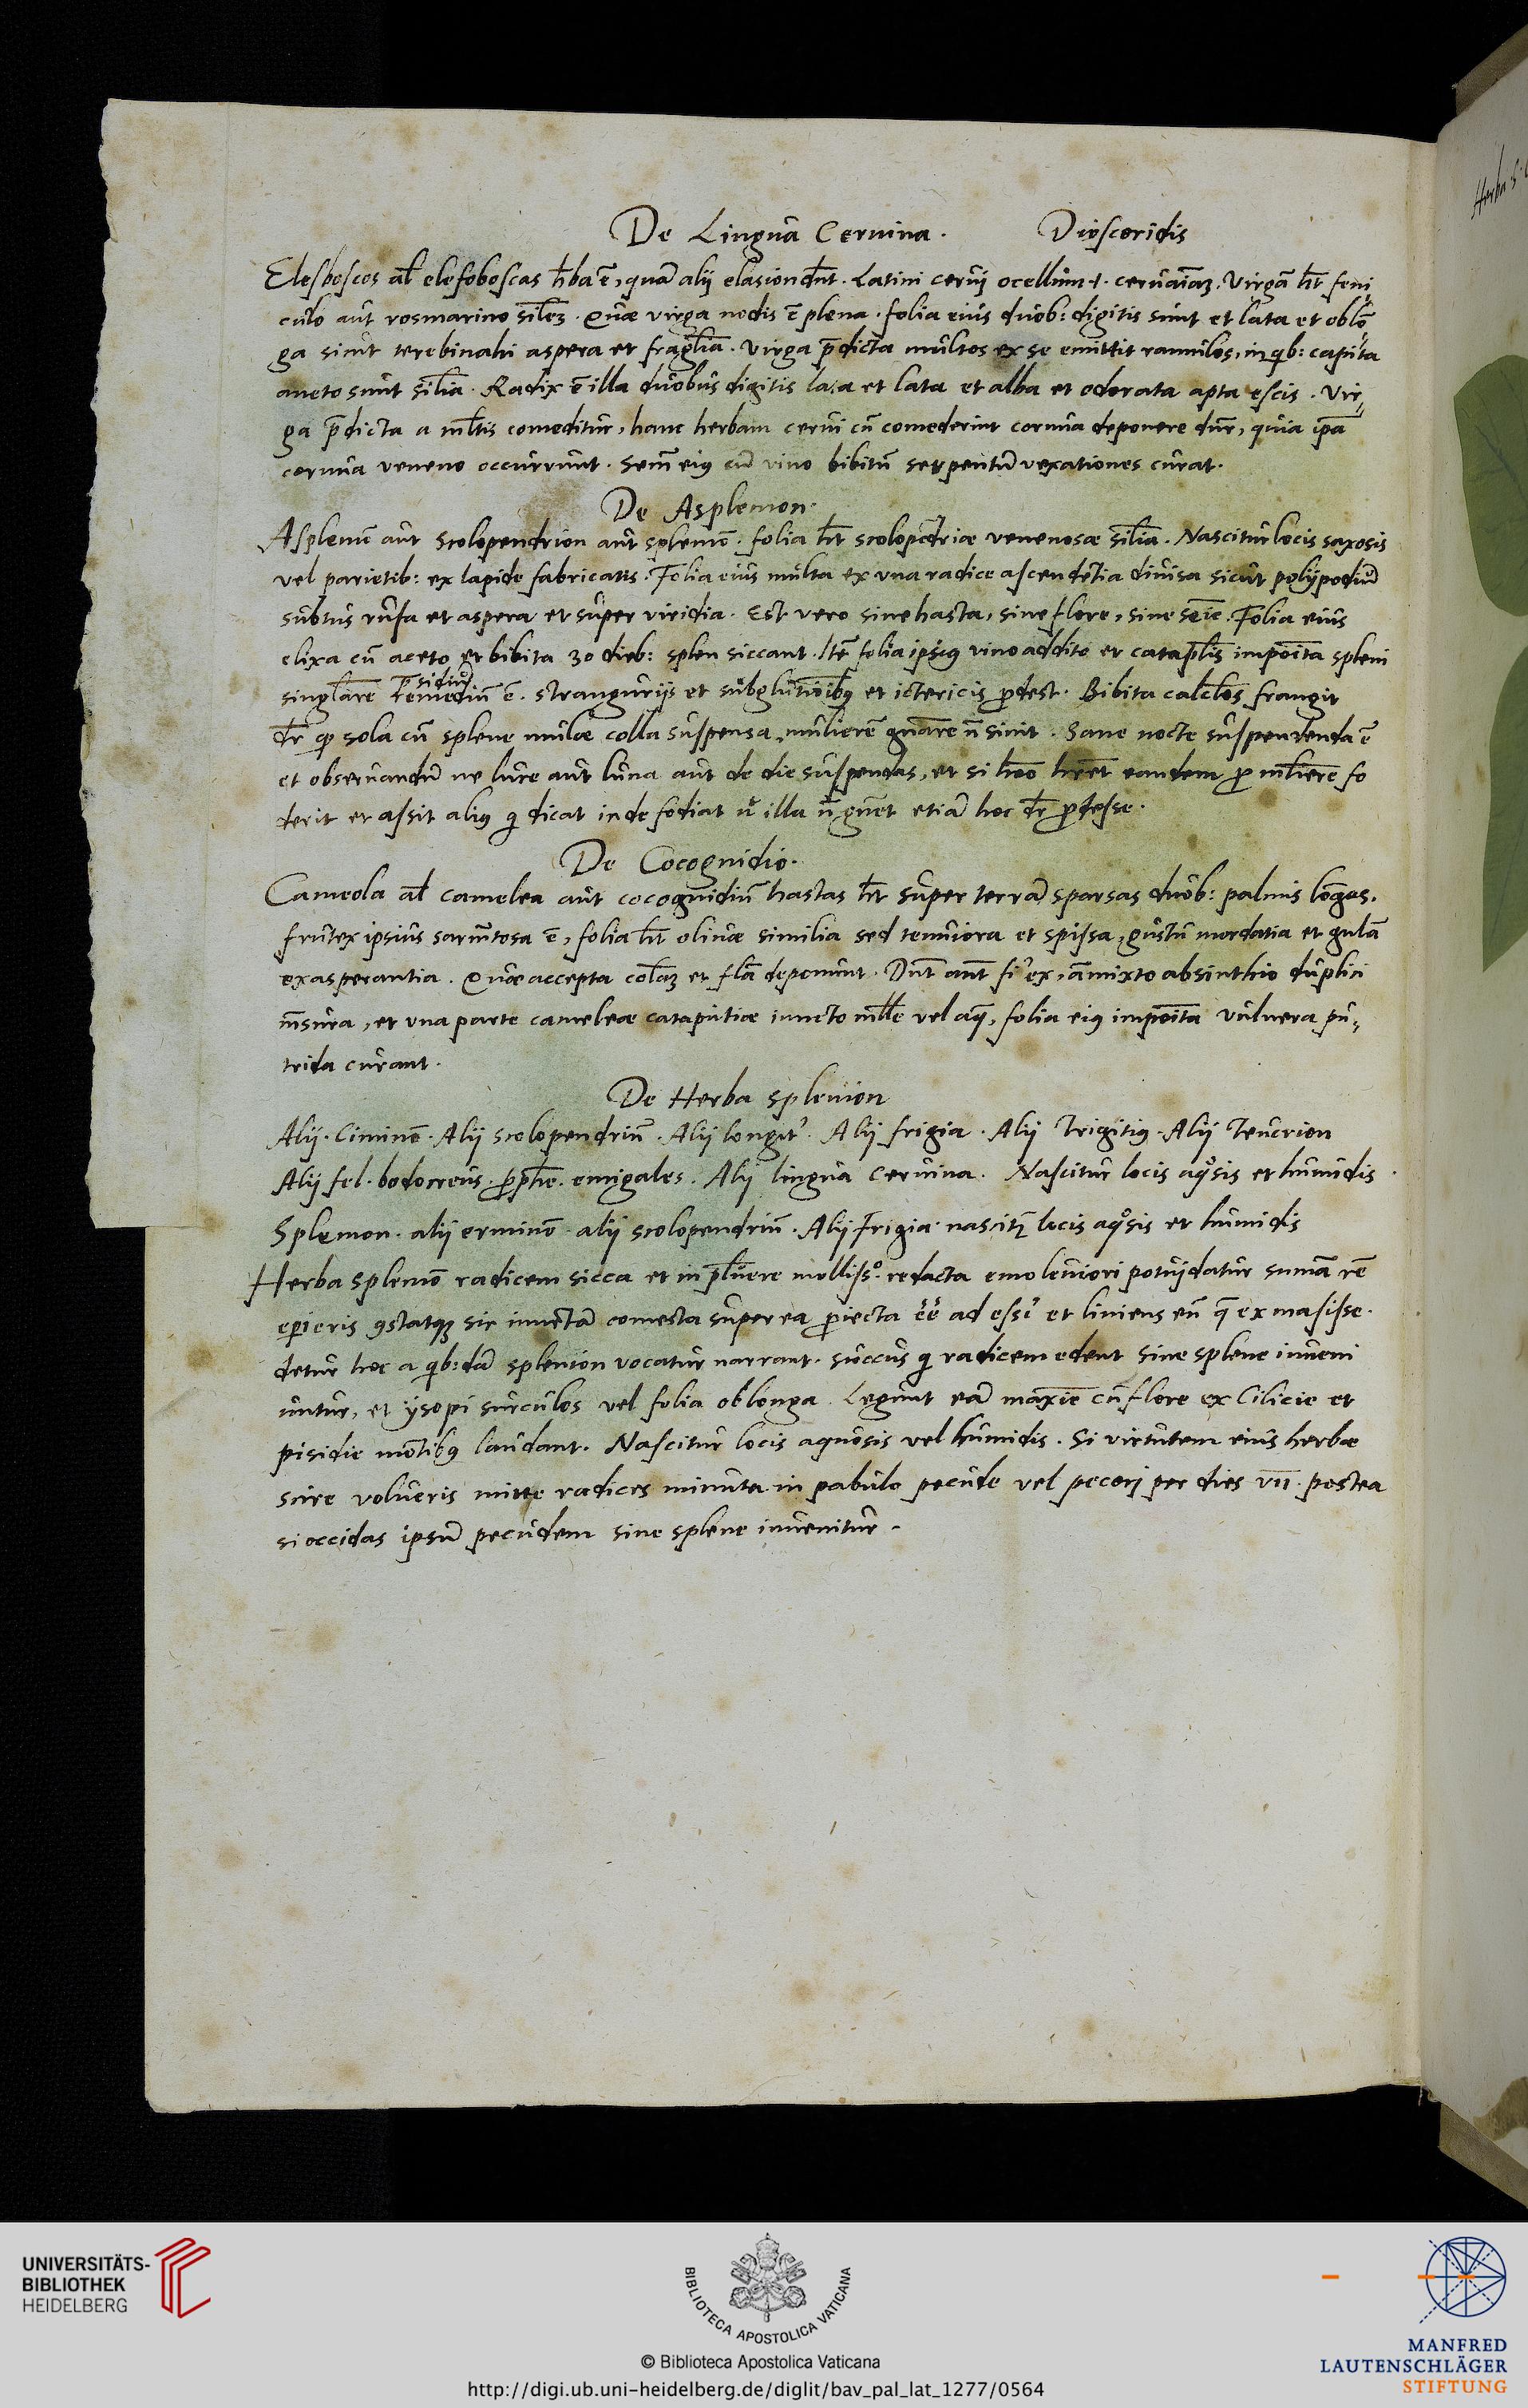 De Lingua Ceruina. Dioscoridis
Elesboscos al̃ elefoboscas h̃ba ẽ, quã alij elasion dñt. Latini cerui ocellum .i. ceruaiaꝫ. Virgã ht̃ feni
culo aut rosmarino siłeꝫ. Quæ virga nodis ẽ plena. folia eius duob: digitis sunt et lata et oblõ
ga sicut aspera et frag̃lia. virga p̃dicta multos ex se emittit ramulos, in qb: capita
aneto sunt siĩlia. Radix ẽ illa duobus digitis la.a et lata et alba et odorata apta escis. Vir„
ga p̃dicta a ml̃tis comeditur, hanc herbam cerui cũ comederint cornua deponere dnr̃, quia ip̃a
cornua veneno occurrunt. Sem̃ eiꝯ cũ vino bibitũ serpentũ vexationes curat.
De Asplenion.
Asplenũ aut scolopendrion aut splenõ. folia ht̃ scolopẽdriæ venenosæ siĩlia. Nascitur locis saxosis
vel parietib: ex lapide fabricatis. Folia eius multa ex vna radice ascendẽtia diuisa sicut polÿpodiũ
subtus rufa et aspera et super viridia. Est vero sine hasta, sine flore, sine sẽie. Folia eius
elixa cũ aceto, et bibita 30 dieb: splen siccant. Itẽ folia ipsiꝯ vino addito et catapl̃is impõita spleni
p̃sidiũ
sing̃lare remediũ ẽ. stranguriis et subglutiõibꝯ et ictericis ꝓdest. Bibita calc̃los frangit
dr̃ ꝙ sola cũ splene mulæ collo suspensa, mulierẽ gnãre ñ sinit. Sane nocte suspendenda ẽ
et obseruandũ ne luce aut luna aut de die suspendas, et si hõo hr̃et eandem ꝓ mlĩere fo
derit et assit aliꝯ q dicat inde fodiat ut illa ñ gñet etiã hoc dr̃ ꝓdesse.
De Cocognidio.
Cameola al̃ camelea aut cocognidiũ hastas ht̃ super terrã sparsas duob: palmis lõgas.
frutex ipsius sarmẽtosa ẽ, folia ht̃ oliuæ similia sed tenuiora et spissa, gustu mordatia et gulã
exasperantia. Quæ accepta col̃aꝫ et fl̃a deponunt. Dñt aut̃ si ex, ãmixto absinthio duplici
m̃sura, et vna parte cameleæ cataputiæ iuncto mlle vel aq̃, folia eiꝯ impõita vulnera pu„
trida curant.
De Herba Splenion
Alij. Ciminõ. Alij scolopendriũ. Alij longit'. Alij frigia. Alij Trigitiꝯ. Alij Teucrion
Alij fel. bodocreus. ꝓph̃e. emigales. Alij lingua ceruina. Nascitur locis aqͦsis et humidis.
Splenion. alij erminõ. alij scolopendriũ. Alij Frigia. nascitꝛ locis aqͦsis et humidis
Herba splenõ radicem sicca et in pl̃uere molliss°. redacta in leuiori potui datur sumã rẽ
eperieris ꝯstatqꝫ sic inuẽtã comesta super ea ꝓiecta ẽẽ ad ess' et liniens eũ q̃ ex masisse.
detur hoc a qb:dã splenion vocatur narrant. succus q radicem edent sine splene inueni
untur, et ysopi surculos vel folia oblonga. Legunt eã maxie cũ flore ex Cilicie et
pisidie mõtibꝯ laudant. Nascitur locis aquosis vel humidis. Si virtutem eius herbæ
scire volueris mitte radices minuta in pabulo pecude vel pecorj per dies VII. postea
si occidas ipsũ pecudem sine splene inuenitur.
Herba
UNIVERSITÄTS-
BIBLIOTHEK
HEIDELBERG
BIBLIOTECA APOSTOLICA VATICANA
© Biblioteca Apostolica Vaticana
http://digi.ub.uni-heidelberg.de/diglit/bav_pal_lat_1277/0564
MANFRED
LAUTENSCHLÄGER
STIFTUNG